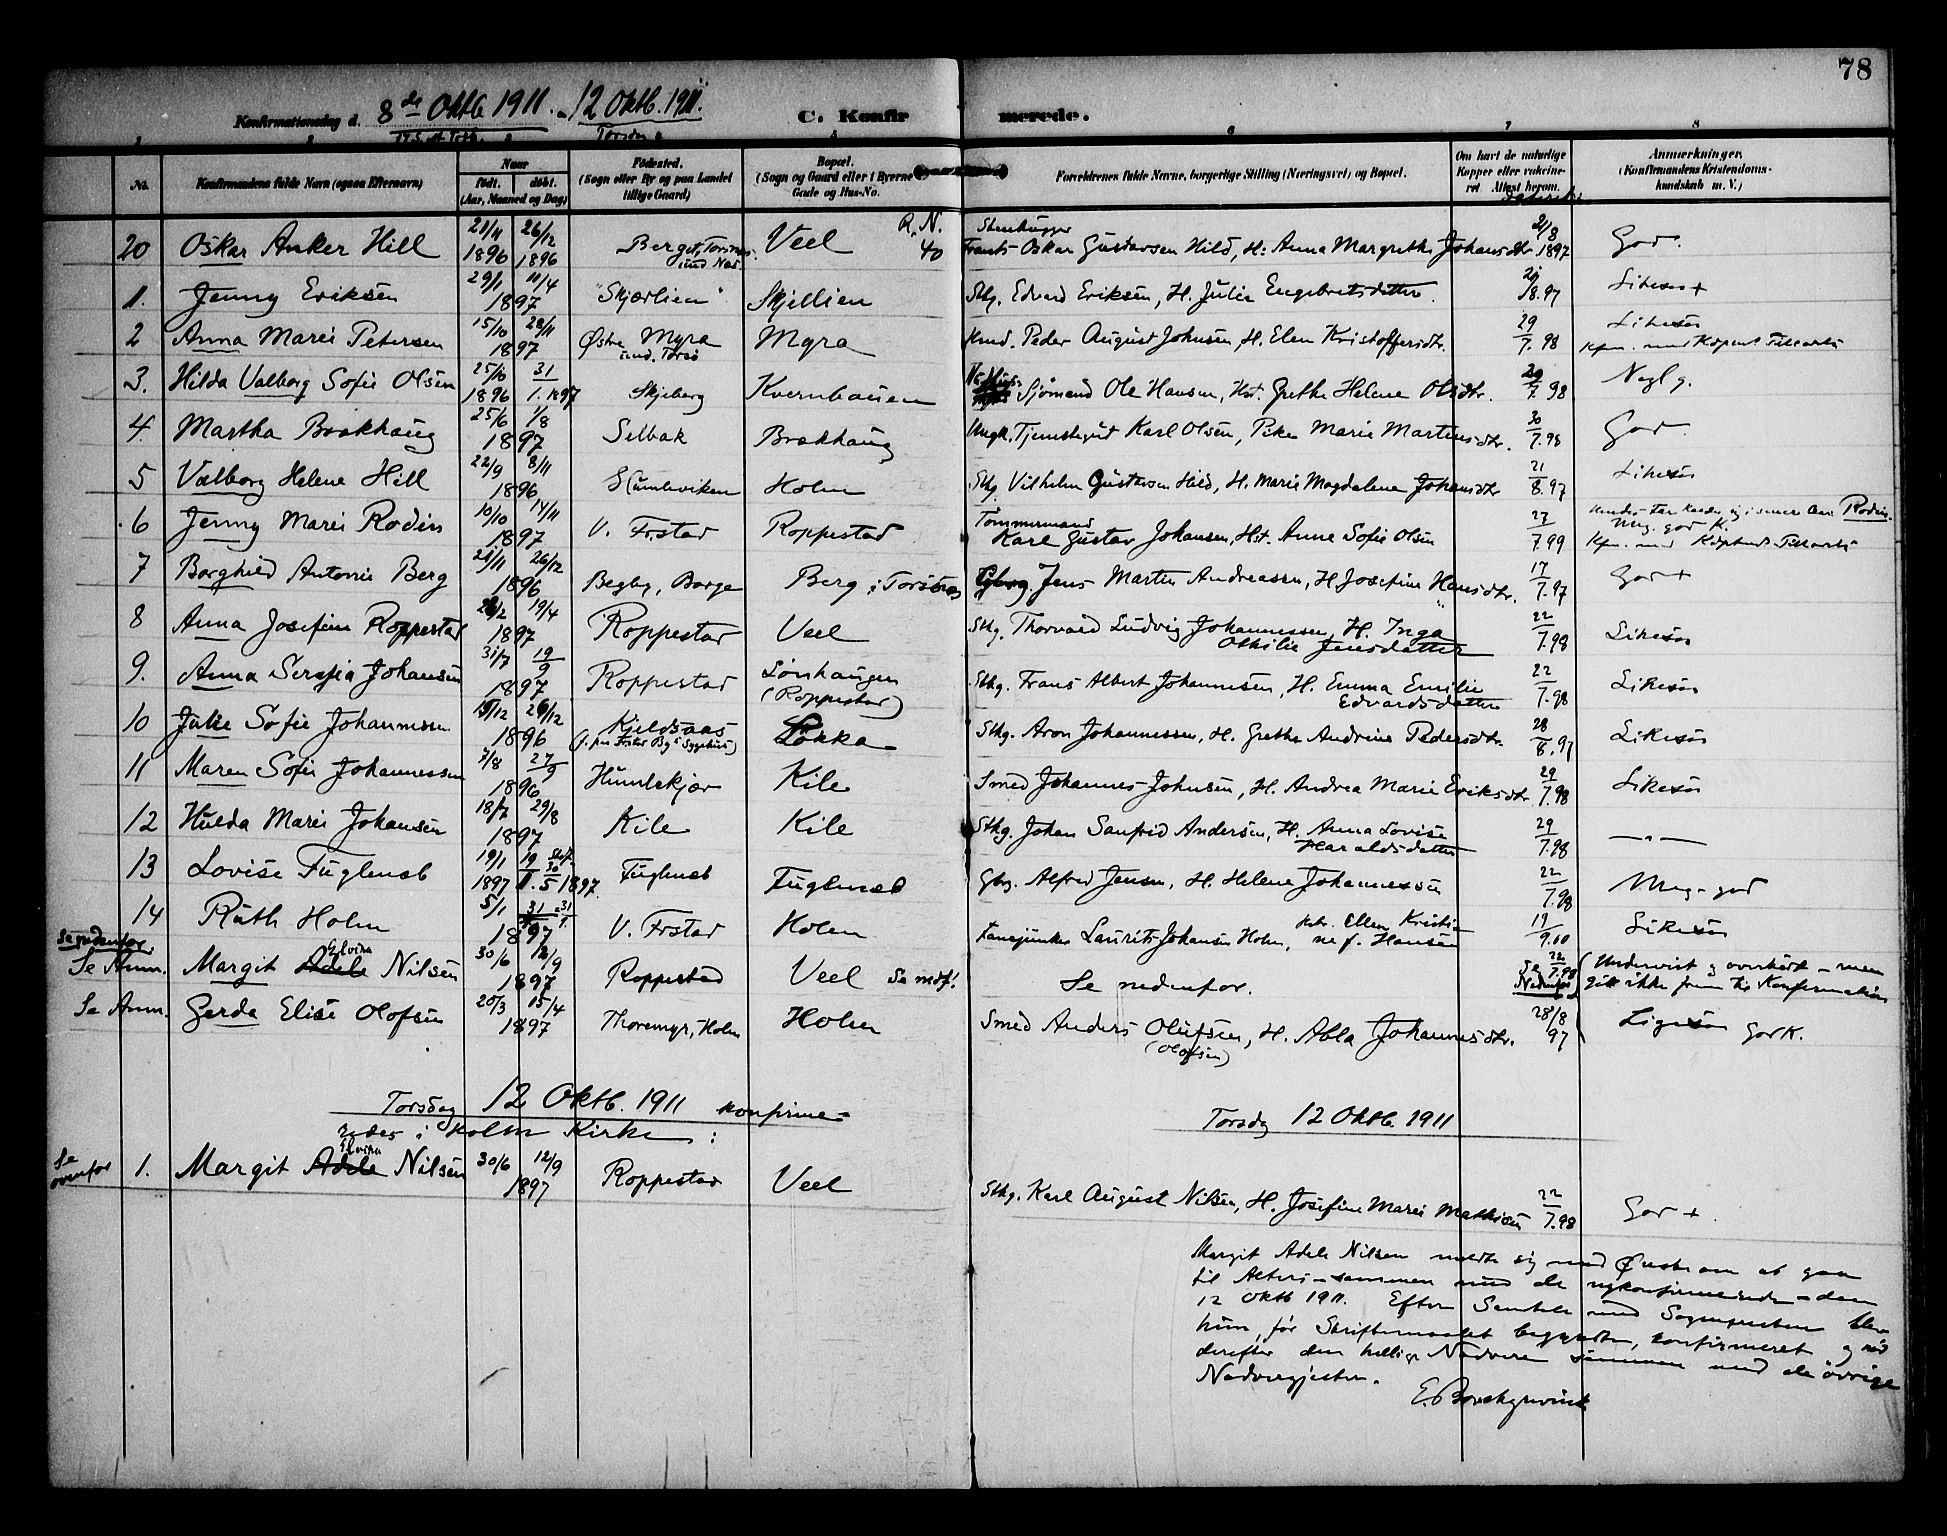 78
Konfirmationsdag d. 8de Oktb 1911. - 12 Oktb. 1911. C. Konfirmerede.
Torsdag
1 2 3 4 5 6 7 8
No. Konfirmandens fulde Navn (ogsaa Efternavn) Naar født. døbt. (Aar, Maaned og Dag) Fødested. (Sogn eller By og paa Landet tillige Gaard) Bopæl. (Sogn og Gaard eller i Byerne Gade og Hus-No. Forældrenes fulde Navne, borgerlige Stilling (Næringsvei) og Bopæl. Om havt de naturlige Kopper eller vakcineret. Attest herom. Anmærkninger. (Konfirmandens Kristendomskundskab m. V.)
20 Oskar Anker Hill 21/11 1896 26/12 1896 Berget, Torsnes Veel R.N. 40 Stenhugger Frants Oskar Gustavsen Hild, H: Anna Margrethe Johansdtr. 2/8 1897 God.
1. Jenny Eriksen 29/1 11/4 1897 "Skjærlien" Skjellien Sthg. Edvard Eriksen, H. Julie Engebretsdatter. 8.97 Likesaa +
2 Anna Marie Petersen 15/10 28/11 1897 Østre Myra Myra Peder August Johnsen, H. Elen Kristoffersdtr. 29/7.98 Likesaa
3. Hilda Valborg Sofie Olsen 25/10 1896 31/1. 1897 Skjeberg Kvernhauen Sjømand Ole Hansen, Hst. Grethe Helene Olsdtr. 29/7.98 Nogl g.
4. Martha Brækhaug 25/6 1/8 1897 Selbak Brækhaug Ungk. Tjenstegut Karl Olsen, Pike Marie Martinsdtr. 30/7.98 God.
5 Valborg Helene Hill 22/9 8/11 1896 Humleviken Holm Sthg. Vilhelm Gustavsen Hild, H. Marie Magdalene Johansdtr 21/8.97 Likesaa
6 Jenny Marie Rodin 10/10 14/11 1897 V. Frstad Roppestad Tømmermand Karl Gustav Johansen, Hst. Anne Sofie Olsen 27/7.99 Rodin. Meg. god K.
7 Borghild Antonie Berg 21/11 26/12 1896 Begby, Borge Berg i Torsnes Gbrg. Jens Martin Andreassen, H. Josefine Hansdtr. 17/7.97 God +
8 Anna Josefine Roppestad 19/4 1897 Roppestad Veel Sthg. Thorvald Ludvig Johannessen, H. Inga Othilie Jensdatter 22/7.98 Likesaa
9. Anna Serafia Johansen 31/7 19/9 1897 Roppestad Lønhaugen (Roppestad) Sthg. Frans Albert Johannesen, H. Emma Emilie Edvardsdatter 22/7.98 Likesaa
10 Julie Sofie Johannesen 26/12 1896 Kjeldsaas (f. paa Frstad By's Sygehus) Løkka Sthg. Aron Johannessen, H. Grethe Andrine Pedersdtr. 28/8.97 Likesaa
11 Maren Sofie Johannessen 7/8 27/9 1896 Humlekjær Kile Smed Johannes Johnsen, H. Andrea Marie Eriksdtr. 29/7.98 Likesaa
12 Hulda Marie Johansen 18/7 29/8 1897 Kile Kile Sthg. Johan Sanfrid Andersen, H. Anna Lovise Haraldsdatter 29/7.98 — " —
13 Lovise Fuglenæb 19/1 1897 30/5 1897. Fuglenæb Fuglenæb Gbrg. Alfred Jensen, H. Helene Johannessen 22/7.98 Meg. god
14 Ruth Holm 5/1 31/1 1897 V. Frstad Holm Laurits Johansen Holm, Hstr. Ellen Kristine f. Hansen 19/9.10 Likesaa
Se nedenfor. Se Anm. Margit Adele Elvira Nilsen 30/6 12/9 1897 Roppestad Veel Se ndf! Se nedenfor. 22/7.98 Se Nedenfor Undervist og overhørt - men gik ikke frem til Konfirmation
Se Anm. Gerda Elise Olofsen 20/3 15/4 1897 Thoremyr, Holm Holm Smed Anders Olufsen, (Olofsen) H. Abla Johannesdtr. 28/8 97 Ligesaa God K.
Torsdag 12 Oktb. 1911 konfirmeredes i Holm Kirke: Torsdag 12 Oktb. 1911
Se ovenfor 1. Margit Adele Elvira Nilsen 30/6 12/9 1897 Roppestad Veel Sthg. Karl August Nilsen, H. Josefine Marie Mathisen 22/7.98 God +.
Margit Adele Nilsen meldte sig med Ønske om at gaa
til Alters - sammen med de nykonfirmerede - den
12 Oktb 1911. Efter Samtale med Sognepresten blev
hun, før Skriftemaalet begyndte, konfirmeret og nød
derefter den hellige Nadvere sammen med de øvrige
Nadvergjester.
E. Borchgrevink